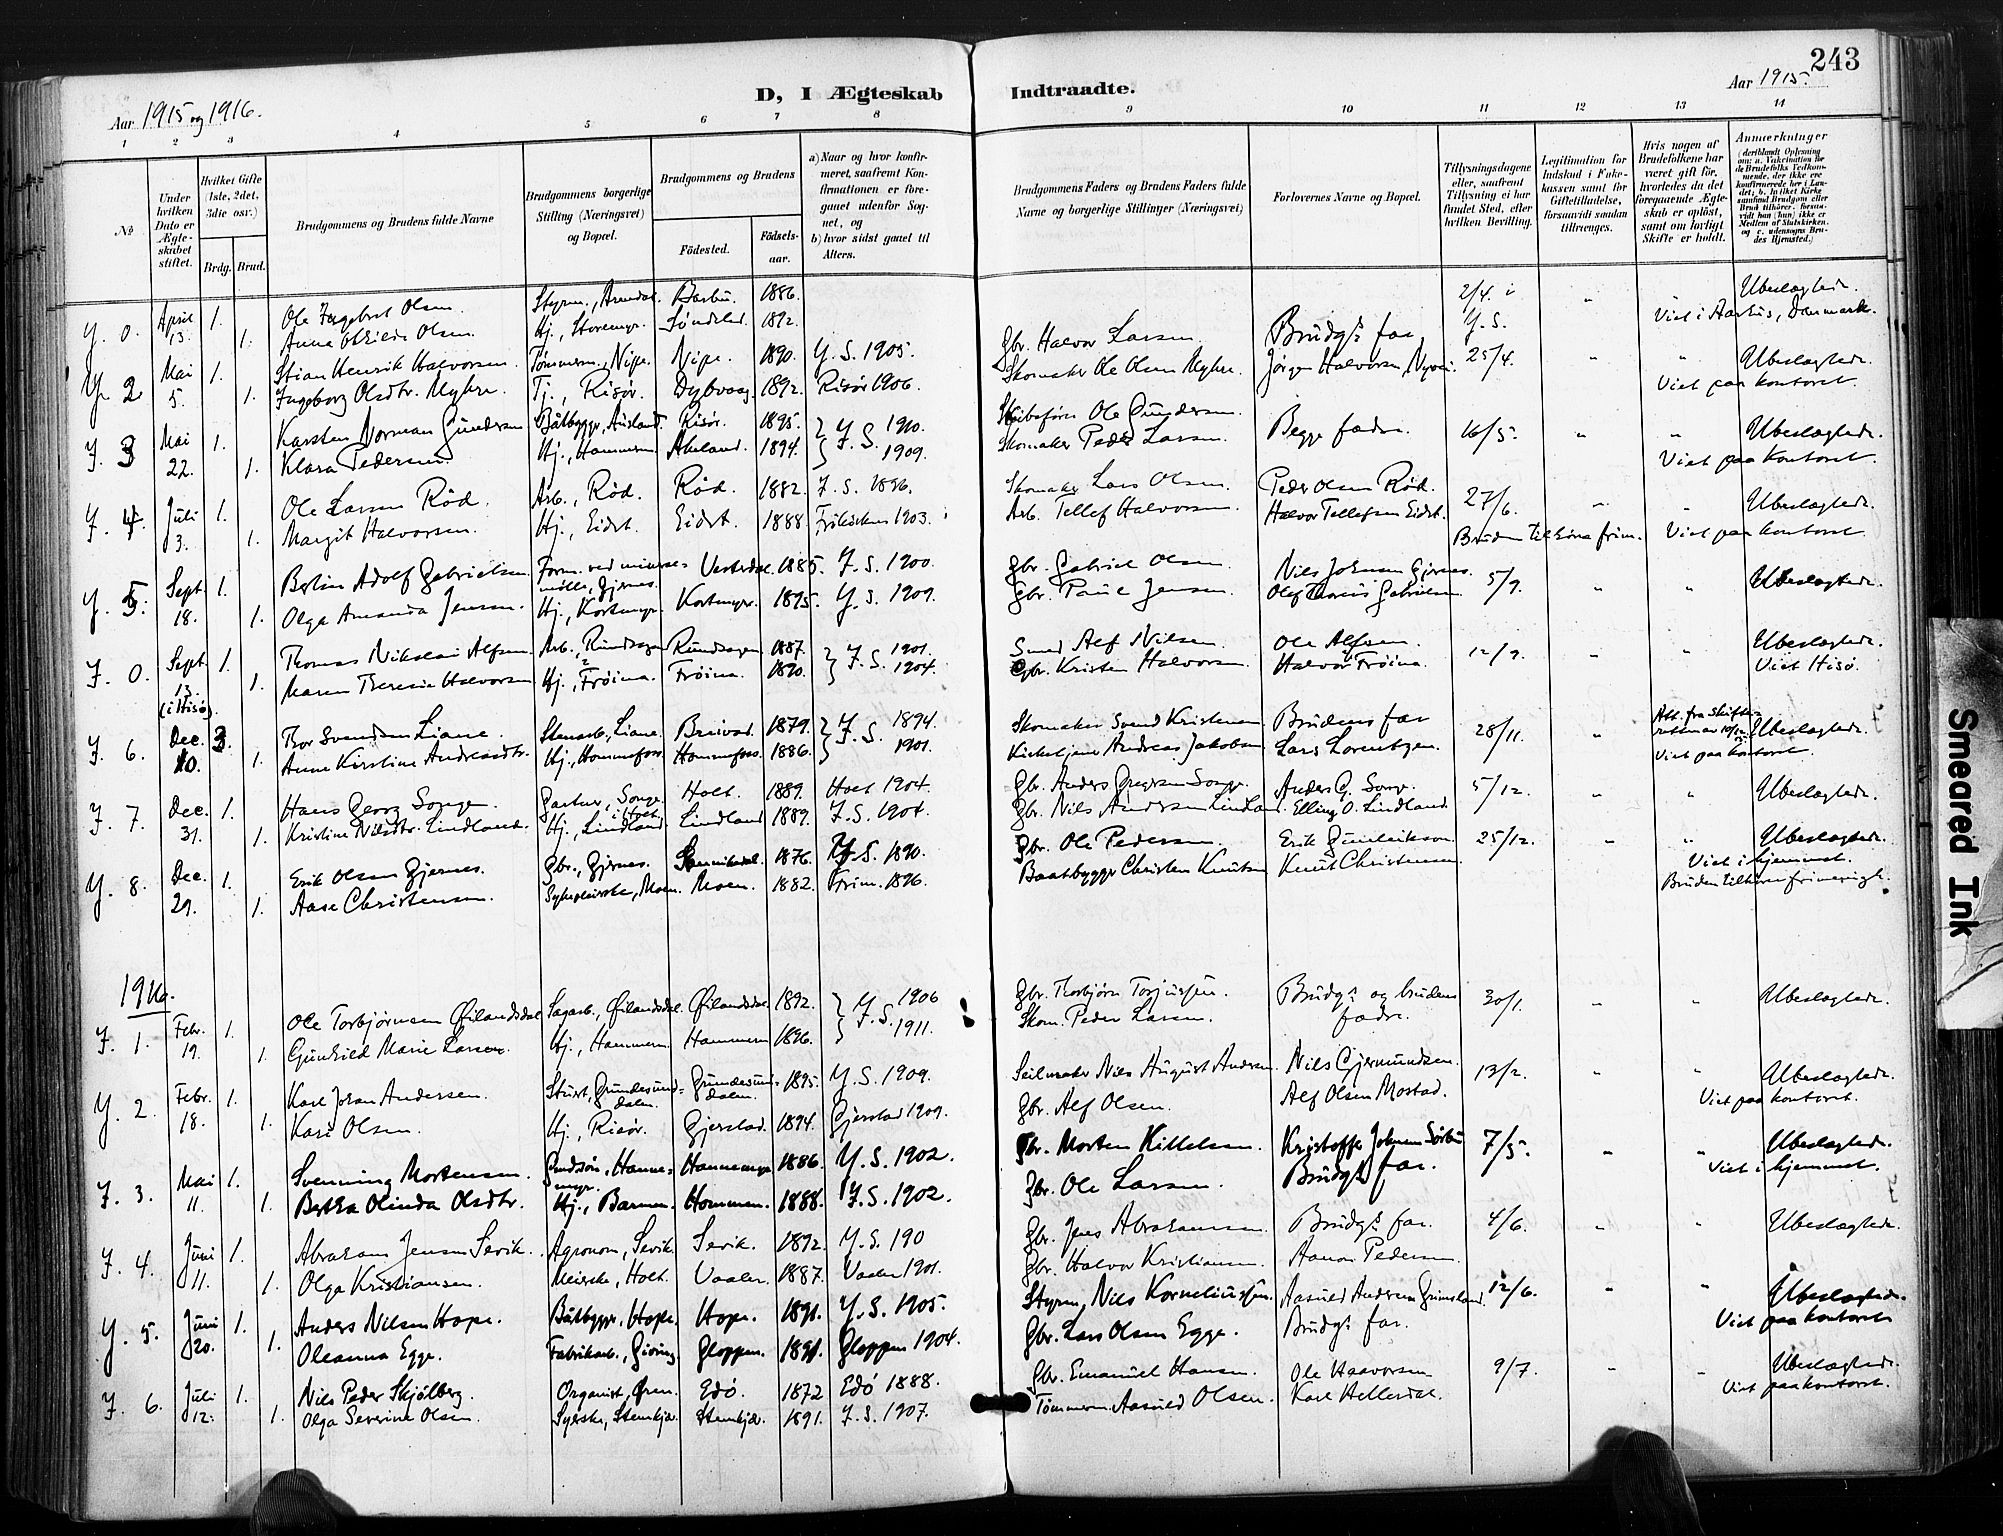 243
Aar 1915 og 1916.
D, I Ægteskab Indtraadte.
Aar 1915.
1 2 3 4 5 6 7 8 9 10 11 12 13 14
No.
Under hvilken Dato er Ægteskabet stiftet.
Hvilket Gifte (1ste, 2det, 3die osv.)
Brdg. Brud.
Brudgommens og Brudens fulde Navne
Brudgommens borgerlige Stilling (Næringsvei) og Bopæl.
Brudgommens og Brudens
Fødested. Fødselsaar.
a) Naar og hvor konfirmeret, saafremt Konfirmationen er foregaaet udenfor Sognet, og
b) hvor sidst gaaet til Alters.
Brudgommens Faders og Brudens Faders fulde Navne og borgerlige Stillinger (Næringsvei)
Forlovernes Navne og Bopæl.
Tillysningsdagene eller, saafremt Tillysning ei har fundet Sted, efter hvilken Bevilling.
Legitimation for Indskud i Enkekassen samt for Giftetilladelse, forsaavidt saadan tiltrænges.
Hvis nogen af Brudefolkene har været gift før, hvorledes da det foregaaende Ægteskab er opløst, samt om lovligt Skifte er holdt.
Anmærkninger
April 1. Ole Ingebret Olsen Styrm., Arendal. Barbu. 1886. 2/4 i Ubeslægtede.
Y. 0. 13. 1. Olsen. Hj., Søndeled. 1892. Gbr. Halvor Larsen Brudgs far Y. S. Viet i Aarhus, Danmark.
Mai 1. Stian Henrik Halvorsen. Tømmerm., Nipe. Nipe. 1890. Y. S. 1905. Skomaker Ole Olsen Myhre. Jørgen Halvorsen, 25/4. Ubeslægtede.
Y. 2 5. 1. Ingeborg Olsdtr. Myhre. Tj., Risør. Dybvaag. 1892. Risør 1906. Viet paa kontoret.
Mai 1. Karsten Norman Gundersen Båtbygger, Risør. 1895. Y. 1910. Ole Gundersen 16/5. Ubeslægtede.
Y. 3 22. 1. Klara Pedersen. Hj., Hammeren. Akeland. 1894. Y. S. 1909. Skomaker Peder Larsen. Begge fædre. Viet paa kontoret.
Juli 1. Ole Larsen Rød. Arb., Rød. Rød. 1882. Y. S. 1896. Skomaker Lars Olsen. Peder Olsen Rød. 27/6. Ubeslægtede.
Y. 4. 3. 1. Margit Halvorsen. Hj., Eidet. Eidet. 1888. Frikirken 1903. Arb. Tellef Halvorsen. Halvor Tellefsen Eidet. Bruden frim. Viet paa kontoret.
Sept. 1. Adolf Gabrielsen Form. ved mineralmølle, Gjernes. Vesterdal. 1885. Y. S. 1900. Gbr. Gabriel Olsen. Nils Johnsen Gjernes. 5/9. Ubeslægtede.
Y. 5. 18. 1. Olga Amanda Jensen. Hj., Kortmyr. Kortmyr. 1895. Y. S. 1909. Gbr. Jensen. Olaf Gabrielsen
Sept. 1. Thomas Nikolai Alfsen Arb., 1887. Y. S. 1901. Smed Alf Nilsen. Ole Alfsen. 12/9. Ubeslægtede.
Y. 0. 13. (i Hisø). 1. Maren Theresie Halvorsen Hj., Frøina. Frøina. 1890. 1904. Gbr. Kristen Halvorsen. Halvor Frøina. Viet Hisø.
Dec. Thor Svendsen Liane. Stenarb., Liane. 1879. Y. S. 1894. Skomaker Svend Kristensen Brudens far 28/11. Att. fra Skifteretten av Ubeslægtede.
Y. 6. 10. 1. Anne Kirstine Andreasdtr. Hj., Hommefoss. Hommefoss. 1886. 1901. Kirketjener Andreas Jakobsen Lars Lorentzen. Viet paa kontoret.
Dec. 1. Hans Georg Songe. Gartner, Songe i Holt. Holt. 1889. Holt 1904. Gbr. Anders Songe. Anders G. Songe. 5/12. Ubeslægtede.
Y. 7. 31. 1. Kristine Nilsdtr. Lindland. Hj., Lindland. Lindland 1889. Y. S. 1904. Gbr. Nils Andersen Lindland. Elling O. Lindland.
Dec. 1. Erik Olsen Gjernes. Gbr., Gjernes. Sannikedal. 1876. Y. S. 1890. Gbr. Ole Pedersen Erik 25/12. Ubeslægtede. Viet i hjemmet.
Y. 8. 29. 1. Aase Christensen. Sykepleierske, Moen. Moen. 1882. Frim. 1896. Baatbygger Christen Knutsen Knut Christensen Bruden tilhører frimenigh.
1916.
Febr. 1. Ole Torbjørnsen Øilandsdal Sagarb., Øilandsdal. Øilandsdal. 1892. Y. S. 1906 Gbr. Thorbjørn Torjussen. Brudgs og brudens fædre. 30/1. Ubeslægtede.
Y. 1. 19. 1. Gunhild Marie Larsen. Hj., Hammeren. Hammeren 1896. 1911. Skom. Peder Larsen.
Febr. 1. Karl Johan Andersen. Stuert, Gundesunddalen. Gundesunddalen. 1895. Y. S. 1909. Seilmaker Nils August Andersen. Nils Gjermundsen. 13/2. Ubeslægtede.
Y. 2. 18. 1. Kari Olsen. Hj., Risør. Gjerstad. 1894. Gjerstad 1909. Gbr. Alf Olsen. Alf Olsen Mostad. Viet paa kontoret.
Mai 1. Svenning Mortensen. Hannemyr. Hannemyr 1886. Y. S. 1902. Gbr. Morten Kittelsen. Kristoffer Johnsen 7/5. Ubeslægtede.
Y. 3. 11. 1. Bertha Olinda Olsdtr. Hj., Barmen. Hommen. 1888. Y. S. 1902. Gbr. Ole Larsen. Brudgs far. Viet i hjemmet.
Juni 1. Abraham Jensen Sevik. Agronom, Sevik. Sevik. 1892. Y. S. 190 Gbr. Jens Abrahamsen Brudgs far. 4/6. Ubeslægtede.
Y. 4. 11. 1. Olga Kristiansen. Meierske, Holt. Vaaler. 1887. Vaaler 1901. Gbr. Halvor Kristiansen. Aanon Pedersen
Juni 1. Anders Nilsen Hope. Båtbygger, Hope. Hope. 1891. Y. S. 1905. Styrm. Nils Korneliussen. Aasuld Andersen Grimsland. 12/6. Ubeslægtede.
Y. 5. 20. 1. Oleanna Egge. Fabrikarb., Gloppen. 1891. Gloppen 1904. Gbr. Lars Olsen Egge. Brudgs far. Viet paa kontoret
Juli 1. Nils Peder Skjølberg. Organist, Øren. Edø. 1872 Edø 1888. Gbr. Emanuel Hansen Ole Haavorsen 9/7. Ubeslægtede.
Y. 6. 12. 1. Olga Severine Olsen. Syerske, Stenkjær. Stenkjær. 1891. Y. S. 1907. Tømmerm. Aasuld Olsen. Karl Hellesdal. Viet paa kontoret.
Smeared Ink